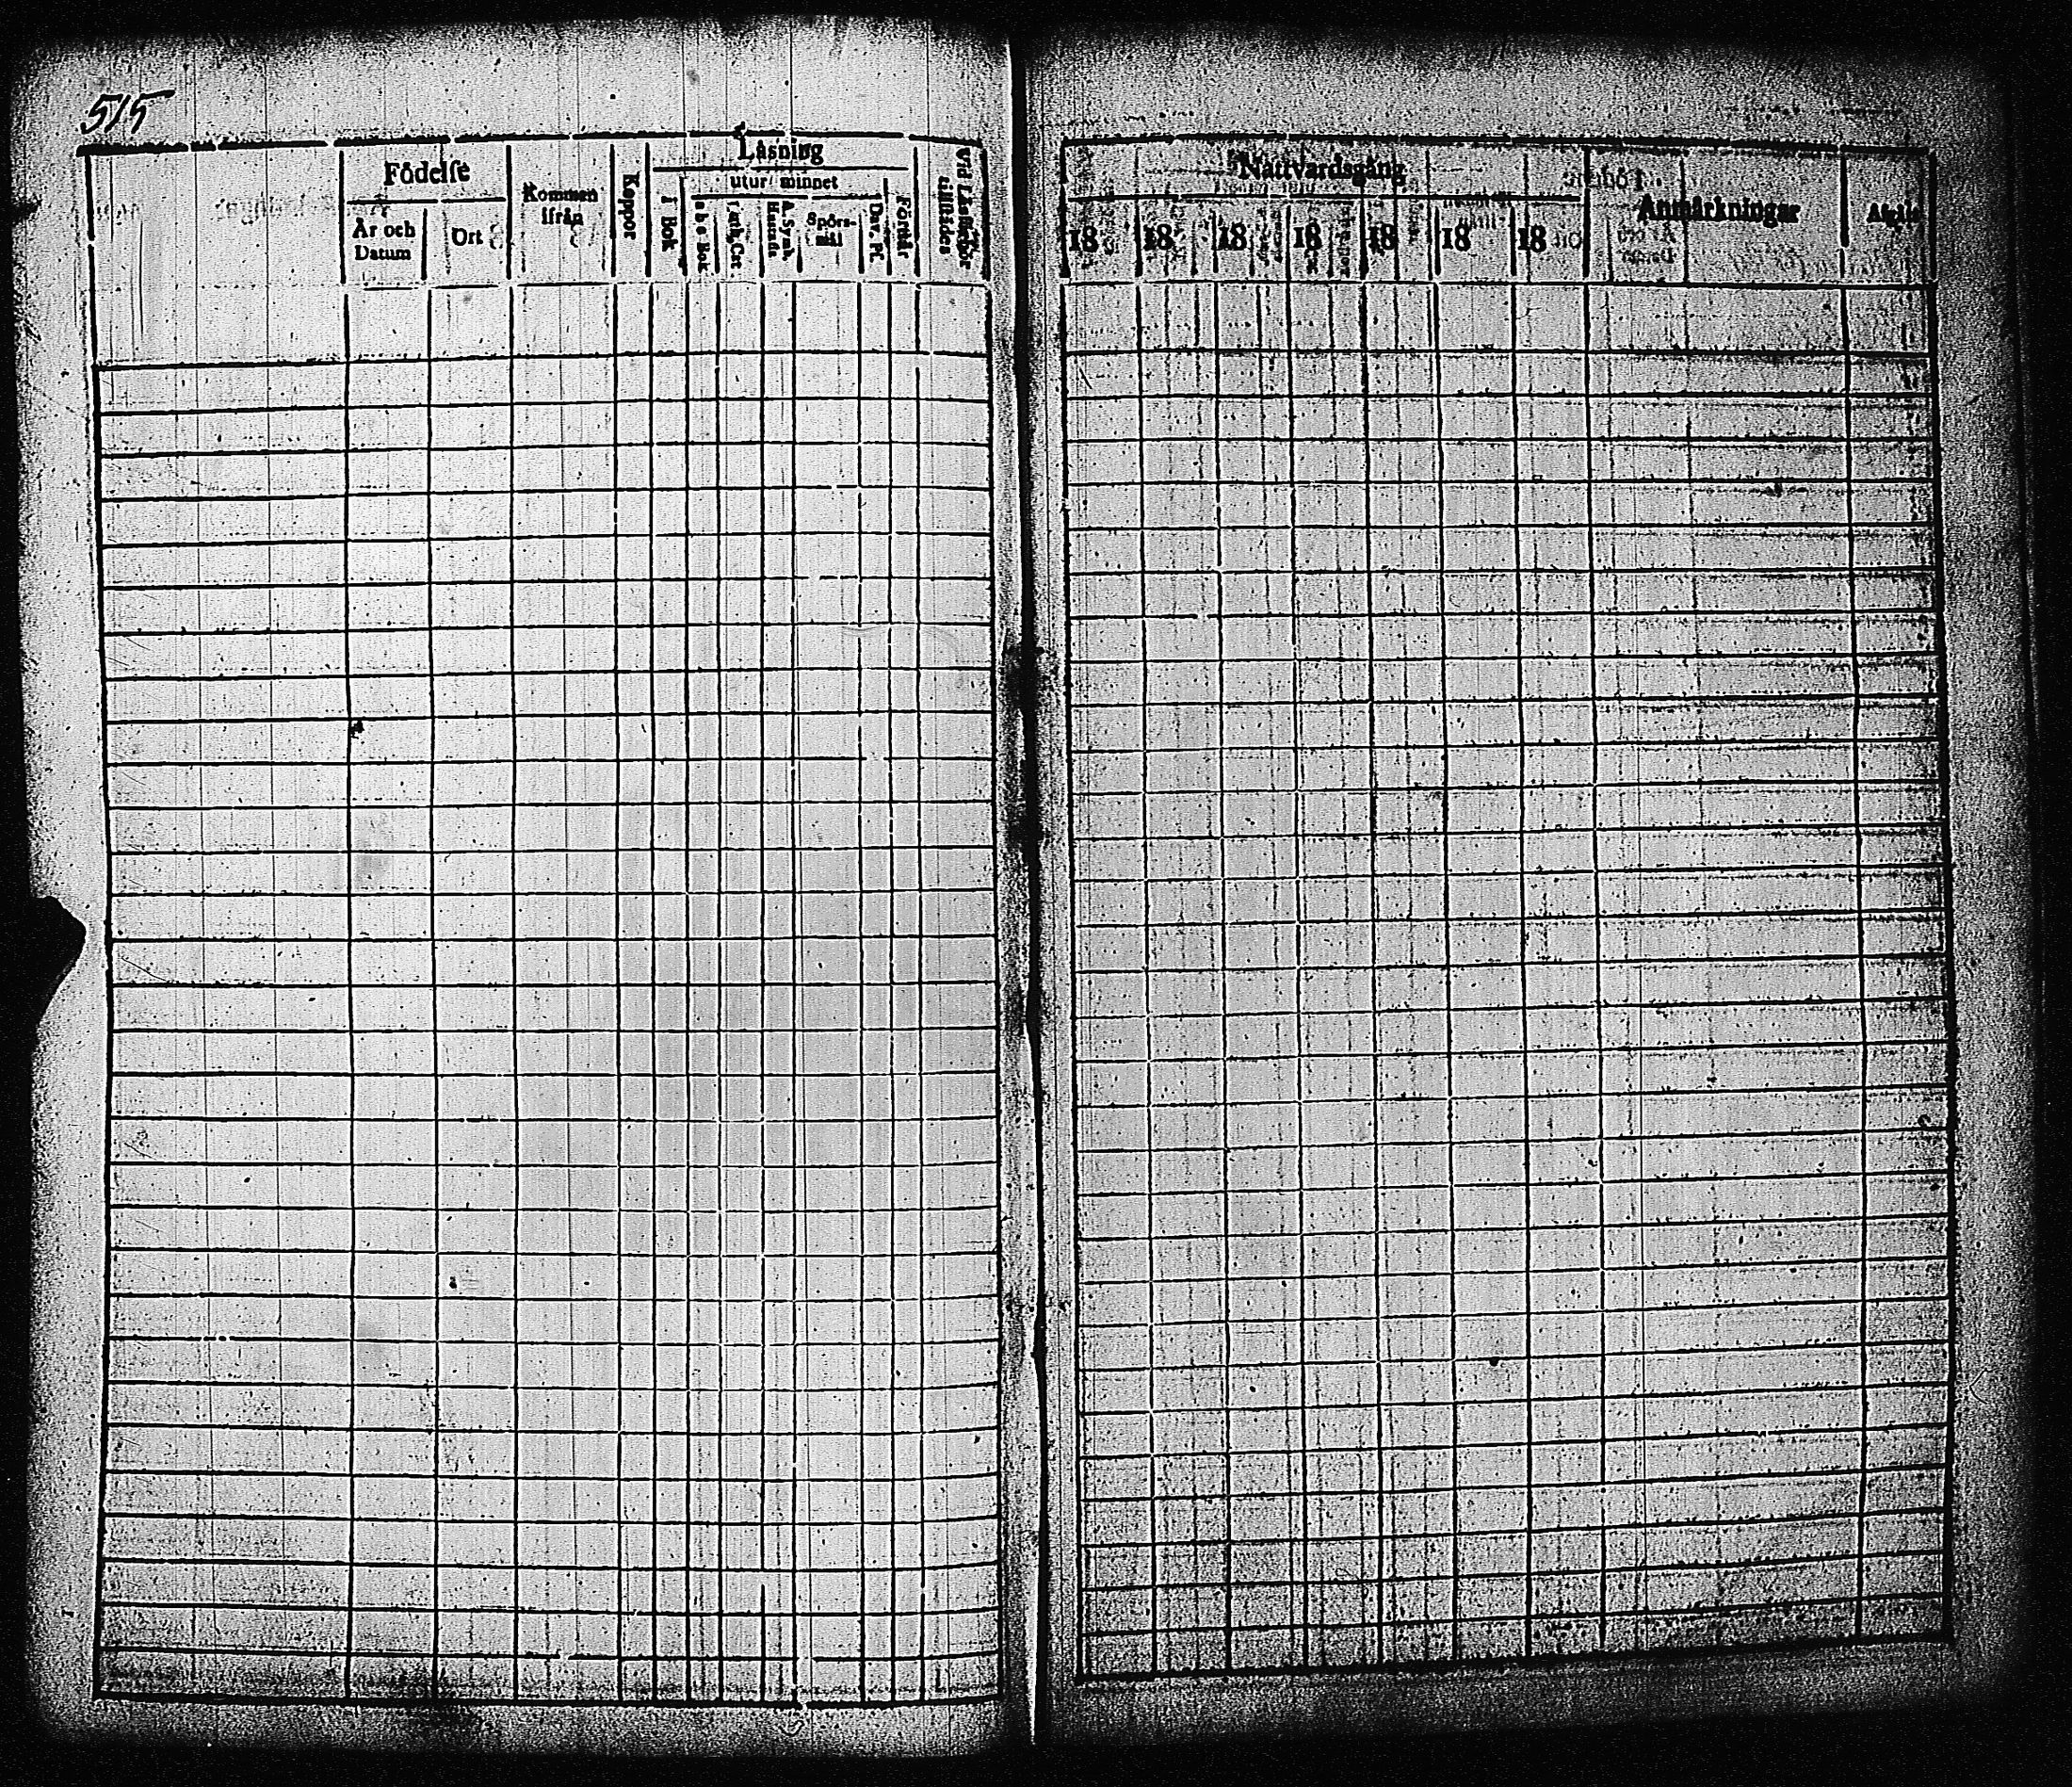 515
Födelse
År och Datum
Ort
Kommen ifrån
Koppor
Läsning
utur minnet
i Bok
a b c Bok
Luth. Cat.
A. Symb. Hustafl.
Spörs-mål
Dav. Ps.
Förstår
Vid Läsförhör tillstädes
Nattvardsgång
18 18 18 18 18 18 18
Anmärkningar